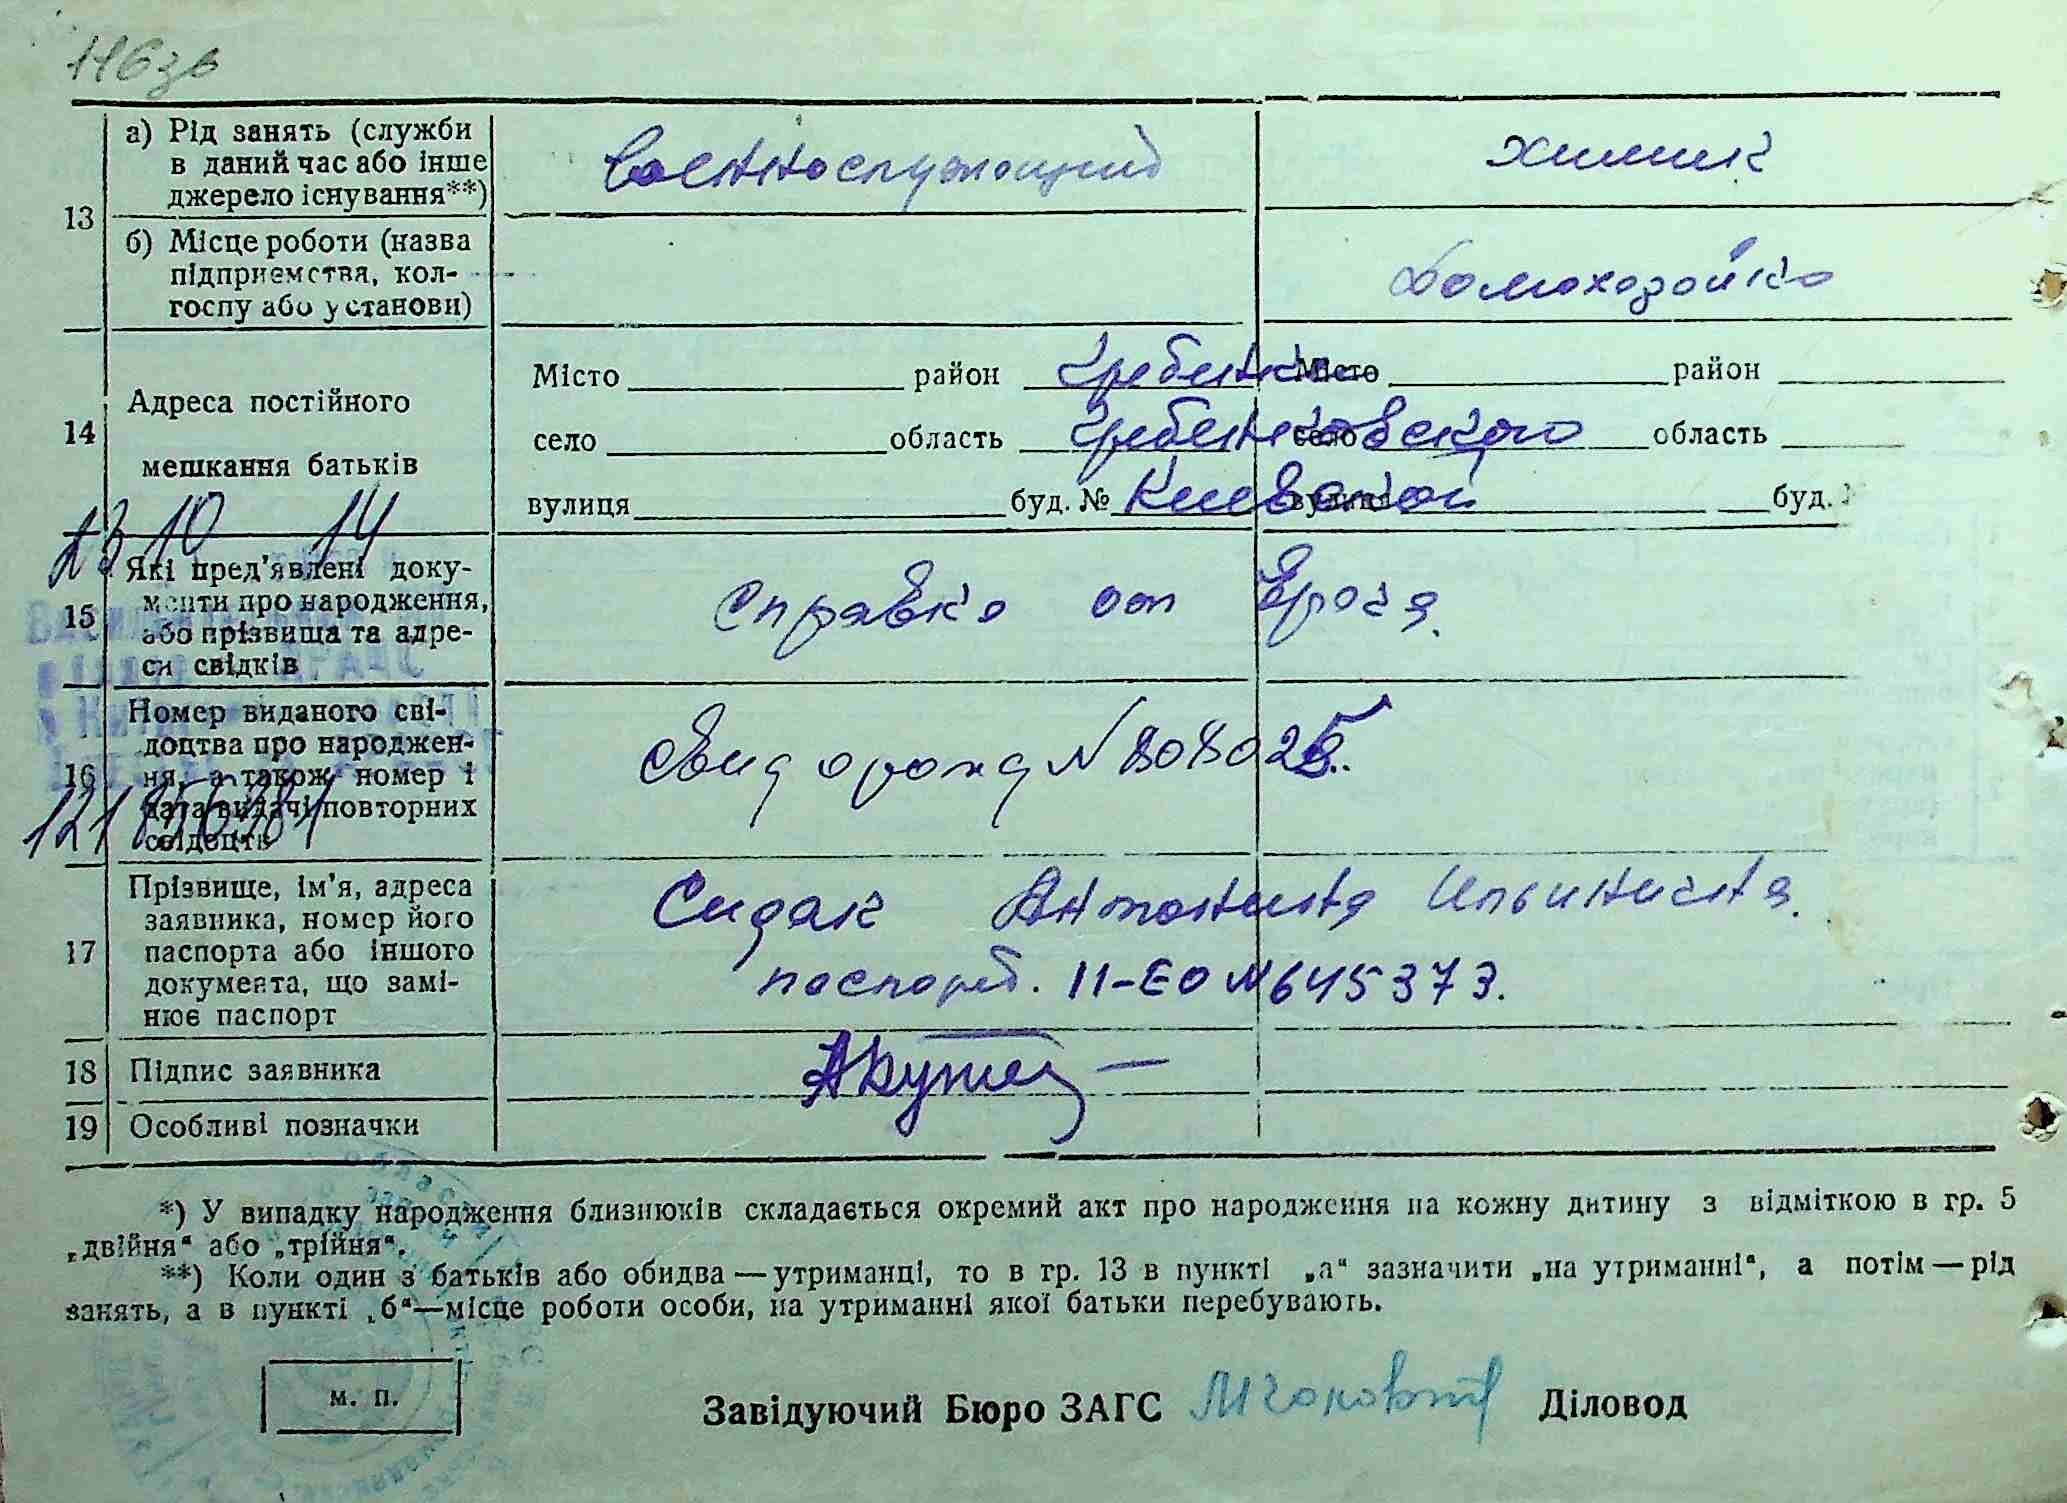 116зв
13
а) Рід занять (служби
в даний час або інше
джерело існування**)
Военнослужащий
химик
б) Місце роботи (назва
підприємства, кол-
госпу або установи)
Домохозойка
14
Адреса постійного
мешкання батьків
Місто район Гребинка Місто район
село область Гребинковского село область
вулиця буд. № Киевской вулиця буд.
13 10 14
15
Які пред'явлені доку-
менти про народження,
або прізвища та адре-
си свідків
справка от врача.
16
Номер виданого сві-
доцтва про народжен-
ня, а також номер і
дата видачі повторних
свідоцтв
Свид о рожд N 808025.
17
Прізвище, ім'я, адреса
заявника, номер його
паспорта або іншого
документа, що замі-
нює паспорт
Сидак Антонина Ильинична.
паспорт. II-ЕО N 645373.
18 Підпис заявника
19 Особливі позначки
*) У випадку народження близнюків складається окремий акт про народження на кожну дитину з відміткою в гр. 5
„двійня“ або „трійня“.
**) Коли один з батьків або обидва — утриманці, то в гр. 13 в пункті „а“ зазначити „на утриманні“, а потім — рід
занять, а в пункті „б“—місце роботи особи, на утриманні якої батьки перебувають.
м. п.
Завідуючий Бюро ЗАГС Діловод